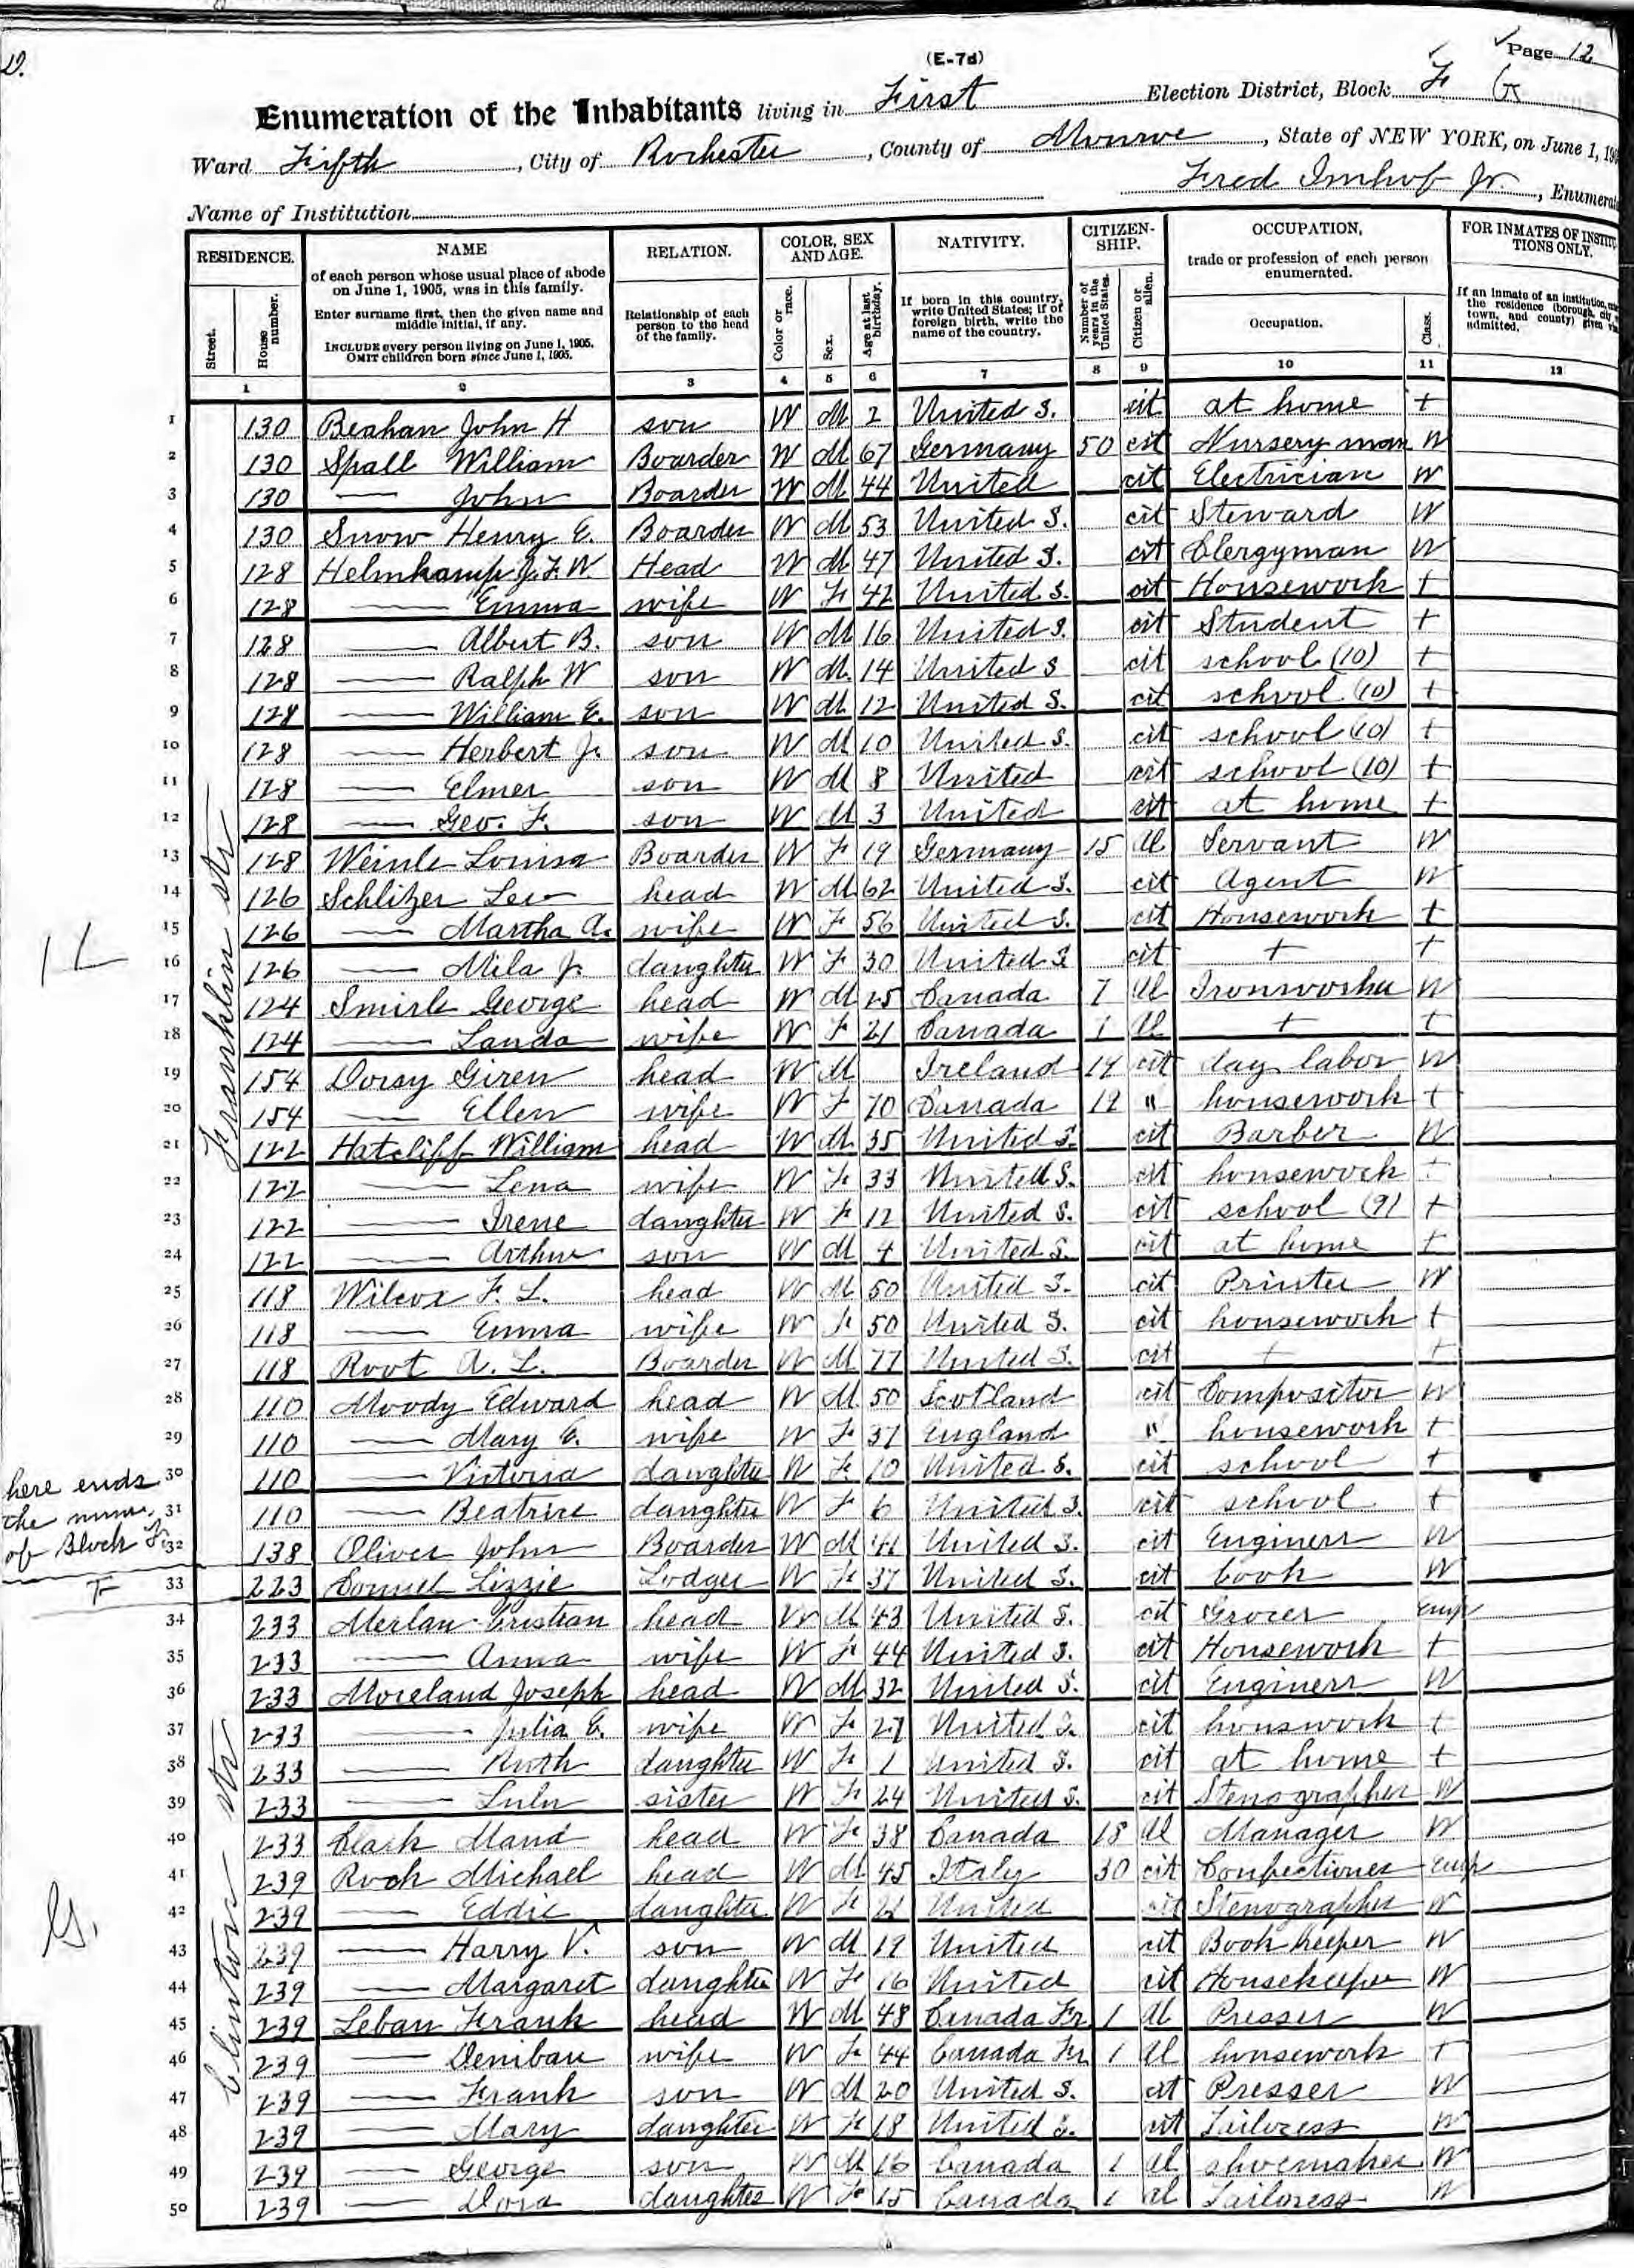 D.
(E-7d)
Page 12
Enumeration of the Inhabitants living in First Election District, Block F G
Ward Fifth, City of Rochester, County of Monroe, State of NEW YORK, on June 1,
Fred Imhof Jr., Enumerat
Name of Institution
RESIDENCE. NAME RELATION. COLOR, SEX AND AGE. NATIVITY. CITIZEN-SHIP. OCCUPATION, FOR INMATES OF INSTITUTIONS ONLY.
of each person whose usual place of abode on June 1, 1905, was in this family.
Enter surname first, then the given name and middle initial, if any.
INCLUDE every person living on June 1, 1905.
OMIT children born since June 1, 1905.
Relationship of each person to the head of the family.
If born in this country, write United States; if of foreign birth, write the name of the country.
trade or profession of each person enumerated.
If an inmate of an institution, the residence (borough, city, town, and county) given admitted.
Street. House number. Color or race. Sex. Age at last birthday. Number of years in the United States. Citizen or alien. Occupation. Class.
1 2 3 4 5 6 7 8 9 10 11 12
Franklin str
1 130 Beahan John H son W M 2 United S. cit at home +
2 130 Spall William Boarder W M 67 Germany 50 cit Nursery man W
3 130 — John Boarder W M 44 United cit Electrician W
4 130 Snow Henry E. Boarder W M 53 United S. cit Steward W
5 128 Helmkamp J. F. W. Head W M 47 United S. cit Clergyman W
6 128 — Emma wife W F 42 United S. cit Housework +
7 128 — Albert B. son W M 16 United S. cit Student +
8 128 — Ralph W son W M 14 United S cit school (10) +
9 128 — William E. son W M 12 United S. cit school (10) +
10 128 — Herbert J. son W M 10 United S. cit school (10) +
11 128 — Elmer son W M 8 United cit school (10) +
12 128 — Geo. F. son W M 3 United cit at home +
13 128 Weinle Louisa Boarder W F 19 Germany 15 Al Servant W
14 126 Schlitzer Leo head W M 62 United S. cit Agent W
15 126 — Martha A. wife W F 56 United S. cit Housework +
16 126 — Mila J. daughter W F 30 United S cit + +
17 124 Smirle George head W M 25 Canada 7 Al Ironworker W
18 124 — Landa wife W F 21 Canada 1 Al + +
19 154 Dorsy Giren head W M Ireland 14 cit day labor W
20 154 — Ellen wife W F 70 Canada 12 " housework +
21 122 Hatcliff William head W M 35 United S. cit Barber W
22 122 — Lena wife W F 33 United S. cit housework +
23 122 — Irene daughter W F 12 United S. cit school (9) +
24 122 — Arthur son W M 4 United S. cit at home +
25 118 Wilcox F. L. head W M 50 United S. cit Printer W
26 118 — Emma wife W F 50 United S. cit housework +
27 118 Root A. L. Boarder W M 77 United S. cit + +
28 110 Moody Edward head W M 50 Scotland cit Compositor W
29 110 — Mary E. wife W F 37 England " housework +
30 110 — Victoria daughter W F 10 United S. cit school +
31 110 — Beatrice daughter W F 6 United S. cit school +
here ends
the
of Block F.
32 138 Oliver John Boarder W M 41 United S. cit Engineer W
33 223 Lizzie Lodger W F 37 United S. cit Cook W
Clinton str
G.
34 233 Merlau Cristian head W M 43 United S. cit Grocer emp
35 233 — Anna wife W F 44 United S. cit Housework +
36 233 Moreland Joseph head W M 32 United S. cit Engineer W
37 233 — Julia E. wife W F 27 United S. cit houswork +
38 233 — Ruth daughter W F 1 United S. cit at home +
39 233 — Lulu sister W F 24 United S. cit Stenographer W
40 233 Clark Maud head W F 38 Canada 18 Al Manager W
41 239 Roch Michael head W M 45 Italy 30 cit Confectioner emp
42 239 — Eddie daughter W F 21 United cit Stenographer W
43 239 — Harry V. son W M 19 United cit Book keeper W
44 239 — Margaret daughter W F 16 United cit Housekeeper W
45 239 Leban Frank head W M 48 Canada Fr 1 Al Presser W
46 239 — Deniban wife W F 44 Canada Fr 1 Al housework +
47 239 — Frank son W M 20 United S. cit Presser W
48 239 — Mary daughter W F 18 United S. cit Tailoress W
49 239 — George son W M 16 Canada 1 Al shoemaker W
50 239 — Dora daughter W F 15 Canada 1 Al Tailoress W